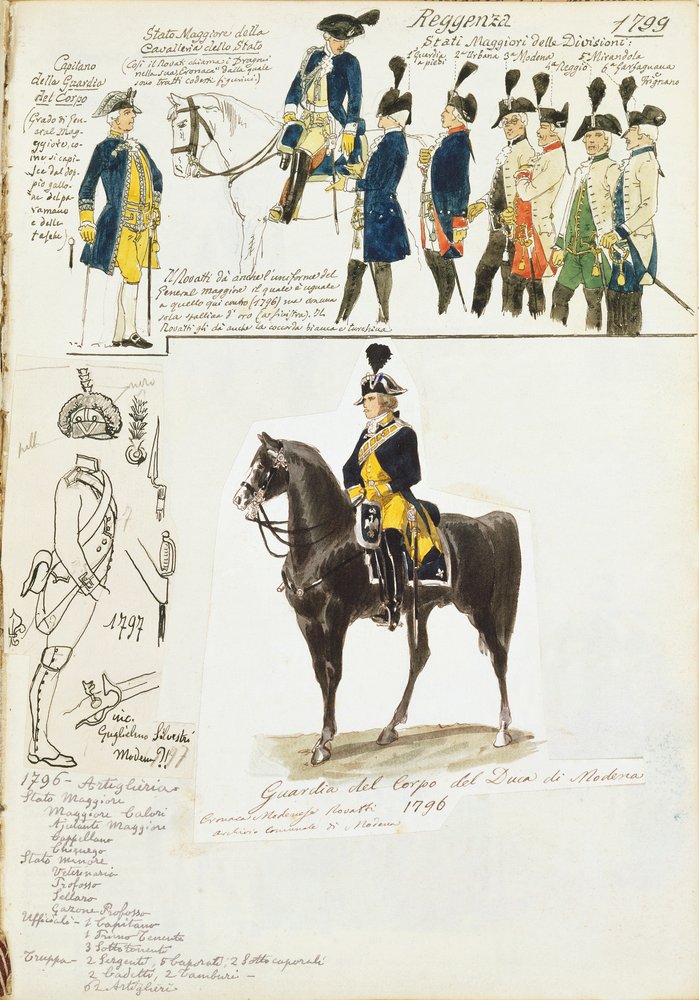 Reggenza
1799
Stati Maggiori delle Divisioni:
1ª Guardia a piedi
2ª Urbana
3ª Modena
4ª Reggio
5ª Mirandola
6ª Garfagnana e
Frignano
Stato Maggiore della
Cavalleria dello Stato
(Così il Rovatti chiama i Dragoni
nella sua Cronaca dalla quale
sono tratti codesti figurini)
Capitano
della Guardia
del Corpo
(Grado di Gen-
eral Mag-
giore, co-
me si capi-
sce dal dop-
pio gallo-
ne del pa-
ramano
e delle
tasche)
Il Rovatti dà anche l'uniforme del
General maggiore il quale è uguale
a quello qui contro (1796) ma con una
sola spallina d'oro (a sinistra). Il
Rovatti gli dà anche la coccarda bianca e turchina
nero
pelle
1797
inc.
Guglielmo Silvestri
Modena
97
Guardia del Corpo del Duca di Modena
1796
Cronaca Modenese Rovatti
archivio comunale di Modena
1796 - Artiglieria.
Stato Maggiore
Maggiore Calori
Ajutante Maggiore
Cappellano
Chirurgo
Stato minore
Veterinario
Profosso
Sellaro
Garzone Profosso
Ufficiali - 1 Capitano
1 Primo Tenente
3 Sottotenenti
Truppa - 2 Sergenti, 5 Caporali, 2 Sotto caporali
2 Cadetti, 2 Tamburi -
62 Artiglieri